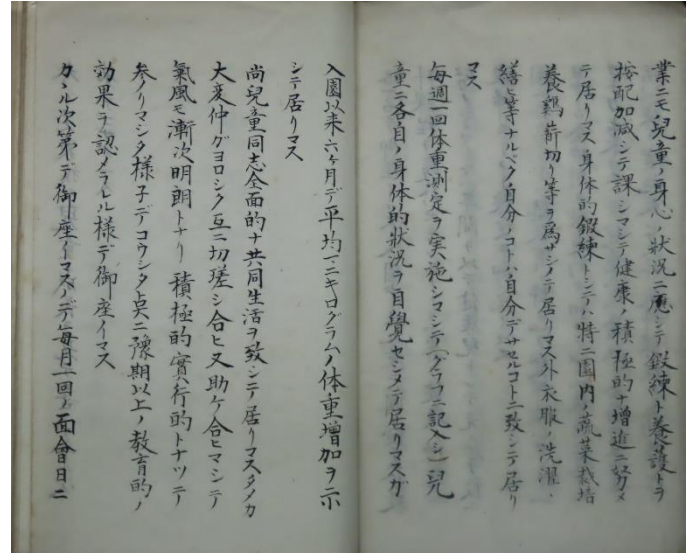 業ニモ兒童ノ身心ノ狀況ニ應シテ鍛練ト養護トヲ
按配加減シテ課シマシテ健康ノ積極的ナ増進ニ努メ
テ居リマス身体的鍛練トシテハ特ニ園内ノ蔬菜栽培
養鷄薪切リ等ヲ爲サシメテ居リマス外衣服ノ洗濯、
繕ヒ等ナルベク自分ノコトハ自分デサセルコトニ致シテ居リ
マス
每週一回体重測定ヲ実施シマシテ(グラフニ記入シ)兒
童ニ各自ノ身体的狀況ヲ自覺セシメテ居リマスガ
入園以来六ケ月デ平均一、二キログラムノ体重增加ヲ示
シテ居リマス
尚兒童同志全面的ナ共同生活ヲ致シテ居リマスタメカ
大変仲ガヨロシク互ニ切瑳シ合ヒ又助ケ合ヒマシテ
氣風モ漸次明朗トナリ積極的實行的トナツテ
参ノリマシタ様子デコウシタ点ニ豫期以上ノ教育的ノ
効果ヲ認メラレル様デ御座イマス
カヽル次第デ御座イマスノデ每月一回ノ面會日ニ